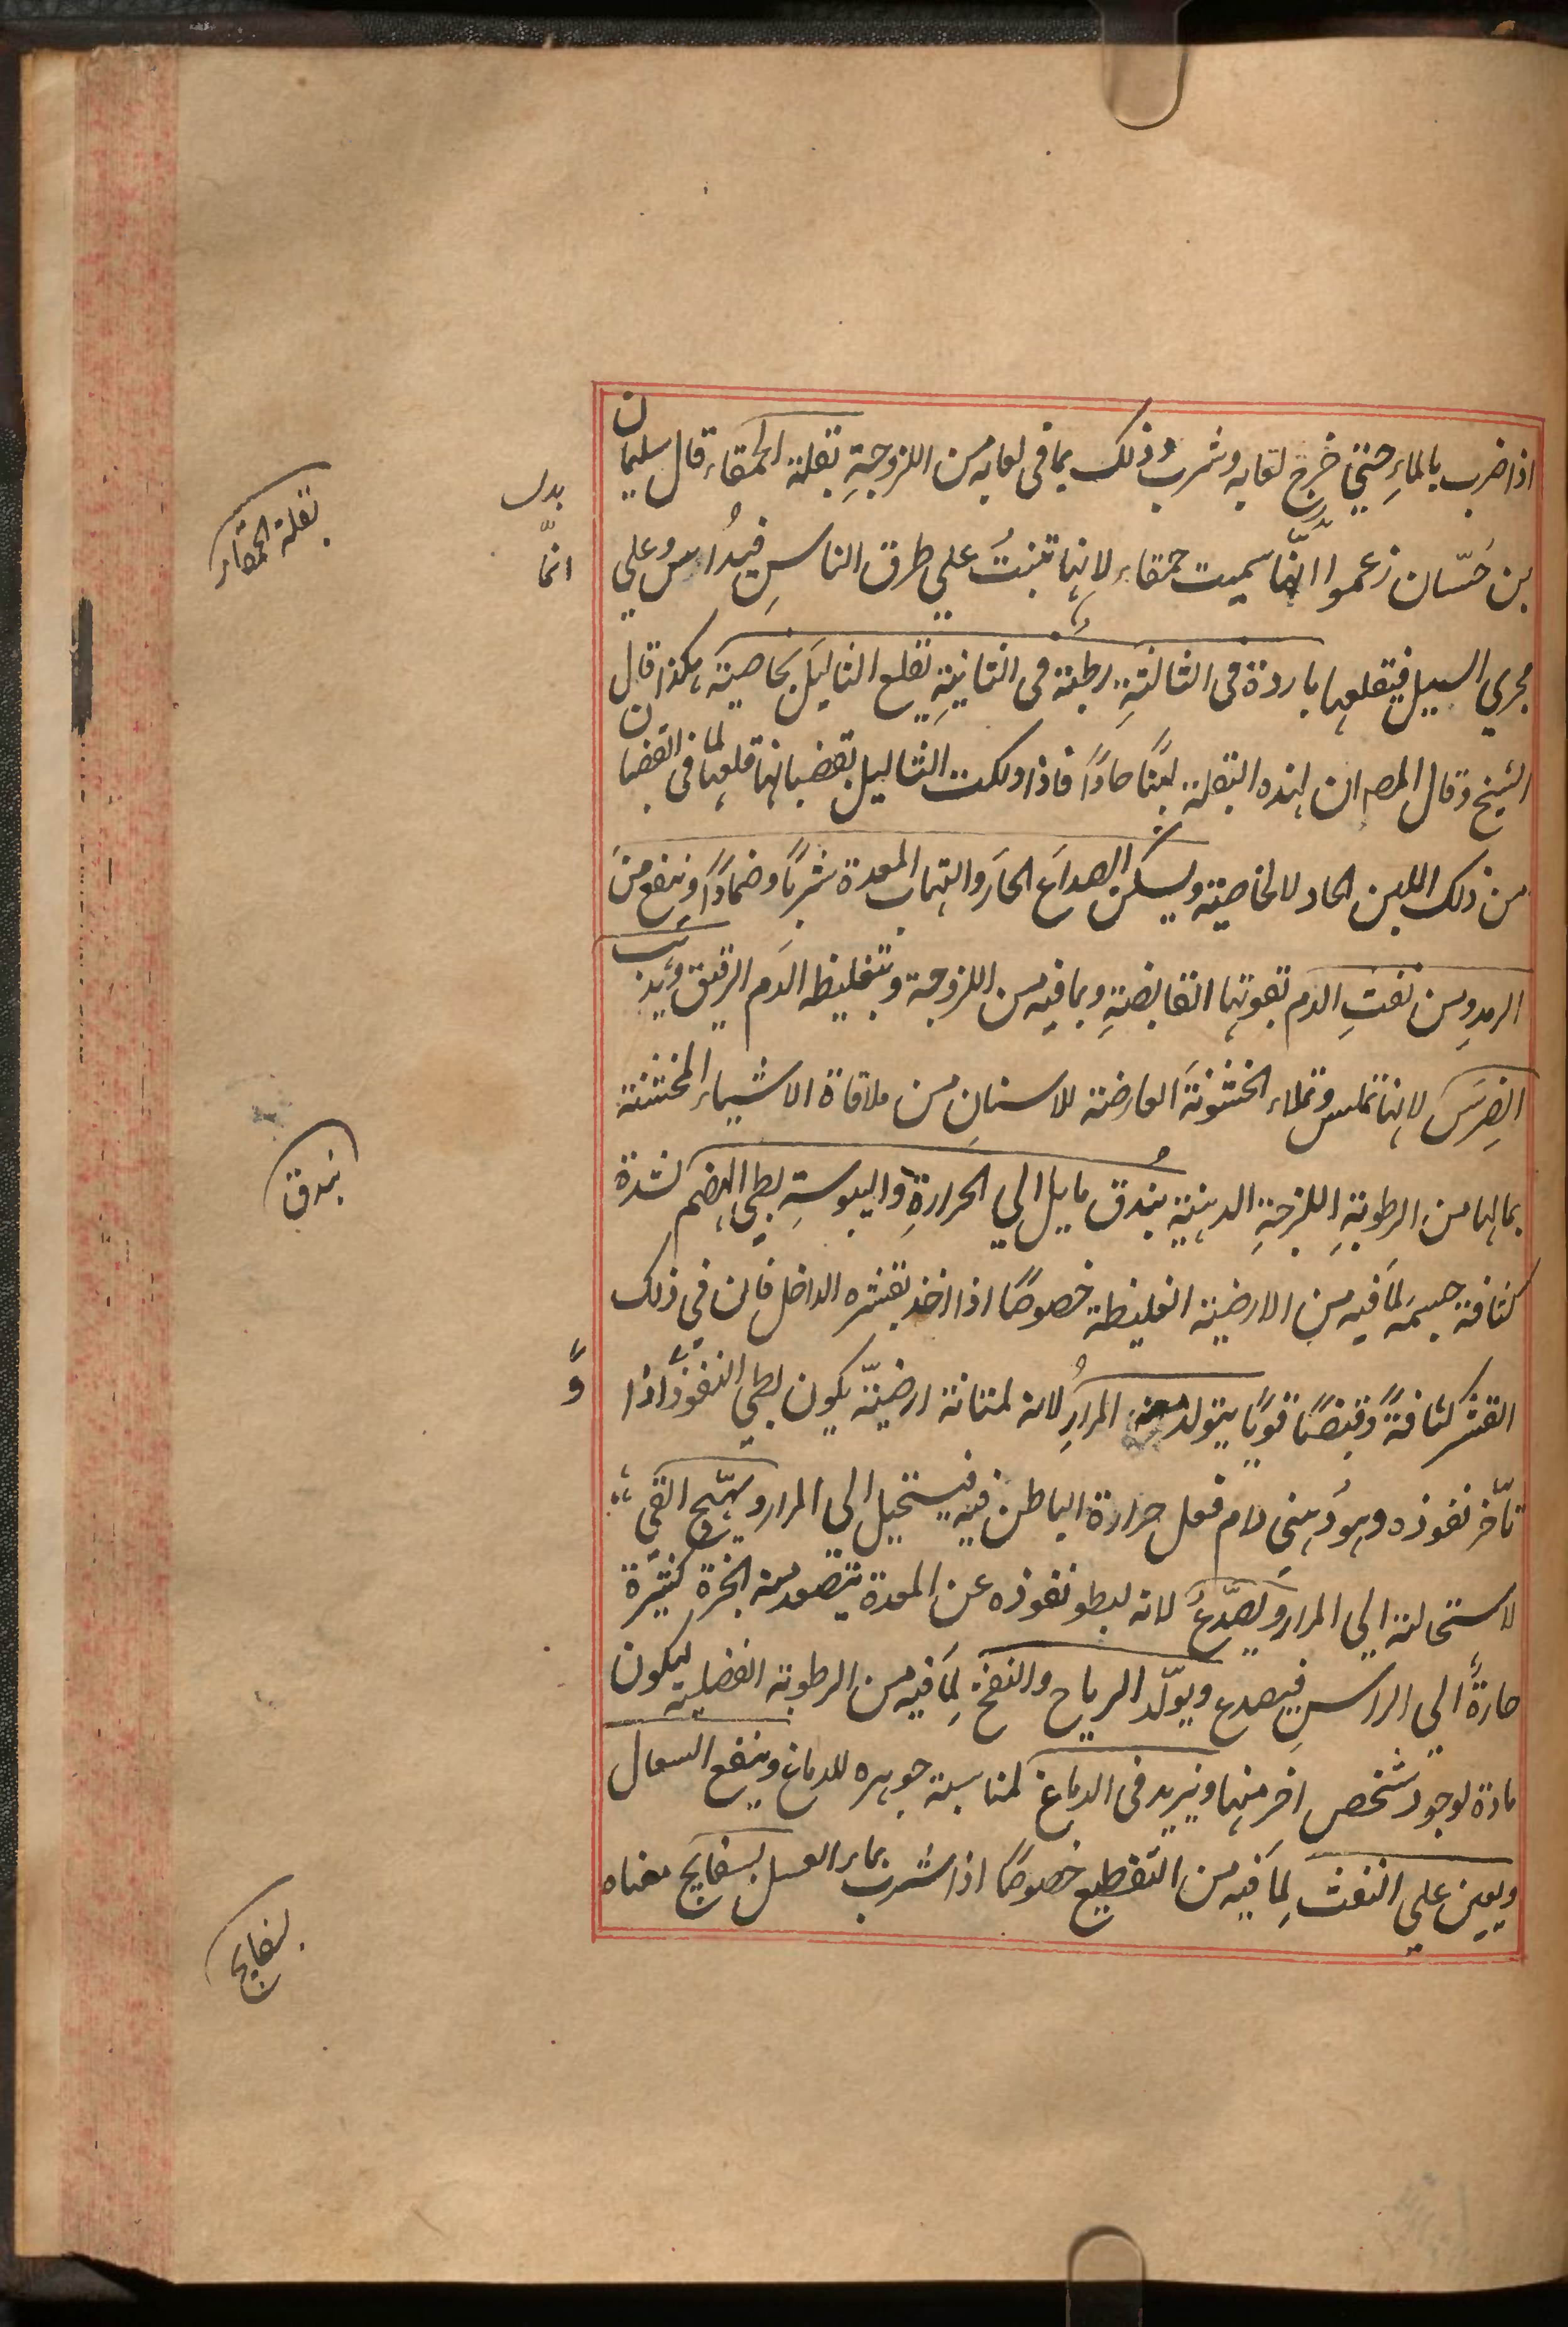 اذا ضرب بالماءِ حتي خرج لعابه وشرب وذلك بما فى لعابه من اللزوجةِ بقلة الحمقاء قال سليمان
بن حَسّان زعموا انّها سميت حمقاء لانها تنبتُ علي طرق الناسِ فيُداس وعلي
مجري السيل فيقلعها باردة فى الثالثةِ رطبة فى الثانيةِ تقلع الثاليَل بخاصيته هكذا قال
الشيخ وقال المصـ ان لهذه البقلة لبنًا حادًا فاذا دلكت الثاليل بقضبانها قلعها لما فى القضبان
من ذلك اللبن الحاد لا لخاصية ويسكن الصداعَ الحارَ والتهاب المعدة شربًا وضمادًا وينفع منَ
الرمدِ ومن نفثِ الدم بقوتها القابضةِ وبما فيه من اللزوجة وبتغليظه الدَم الرقيق ويذهب
الضِرسَ لانها تملس وتملاء الخشونةَ العارضة للاسنانِ من ملاقاة الاشياء المخشنة
بما لها من الرطوبةِ اللزجةِ الدهنية بندق مايل الي الحرارةِ واليبوسةِ بطي الهضم لشدة
كثافة جسمه لما فيه من الارضية الغليظة خصوصًا اذا اخذ بقشره الداخل فان في ذلك
القشر كثافةً وقبضًا قويًا يتولد منه المرارُ لانه لمتانة ارضيّة يكون بطي النفوذ واذا
تأخر نفوذه وهو دُهني دام فعل حرارة الباطن فيه فيستحيل الي المرار ويهيّج القي
لاستحالته الي المرار ويصدّعُ لانه لبطو نفوذه عن المعدة يتصعد منه ابخرة كثيرة
حارة الي الراسِ فيصدع ويولّد الرياح والنفخ لِما فيه من الرطوبة الفضلية ليكون
مادة لوجود شخص اخر منها ويزيد فى الدماغ لمناسبة جوهره للدماغ وينفع السعال
ويعين علي النفث لِما فيه من التقطيع خصوصًا اذا شرب بماء العسل بسفايج معناه
بدل
انمّا
بقلة الحمقاء
بندق
وً
بسفايج